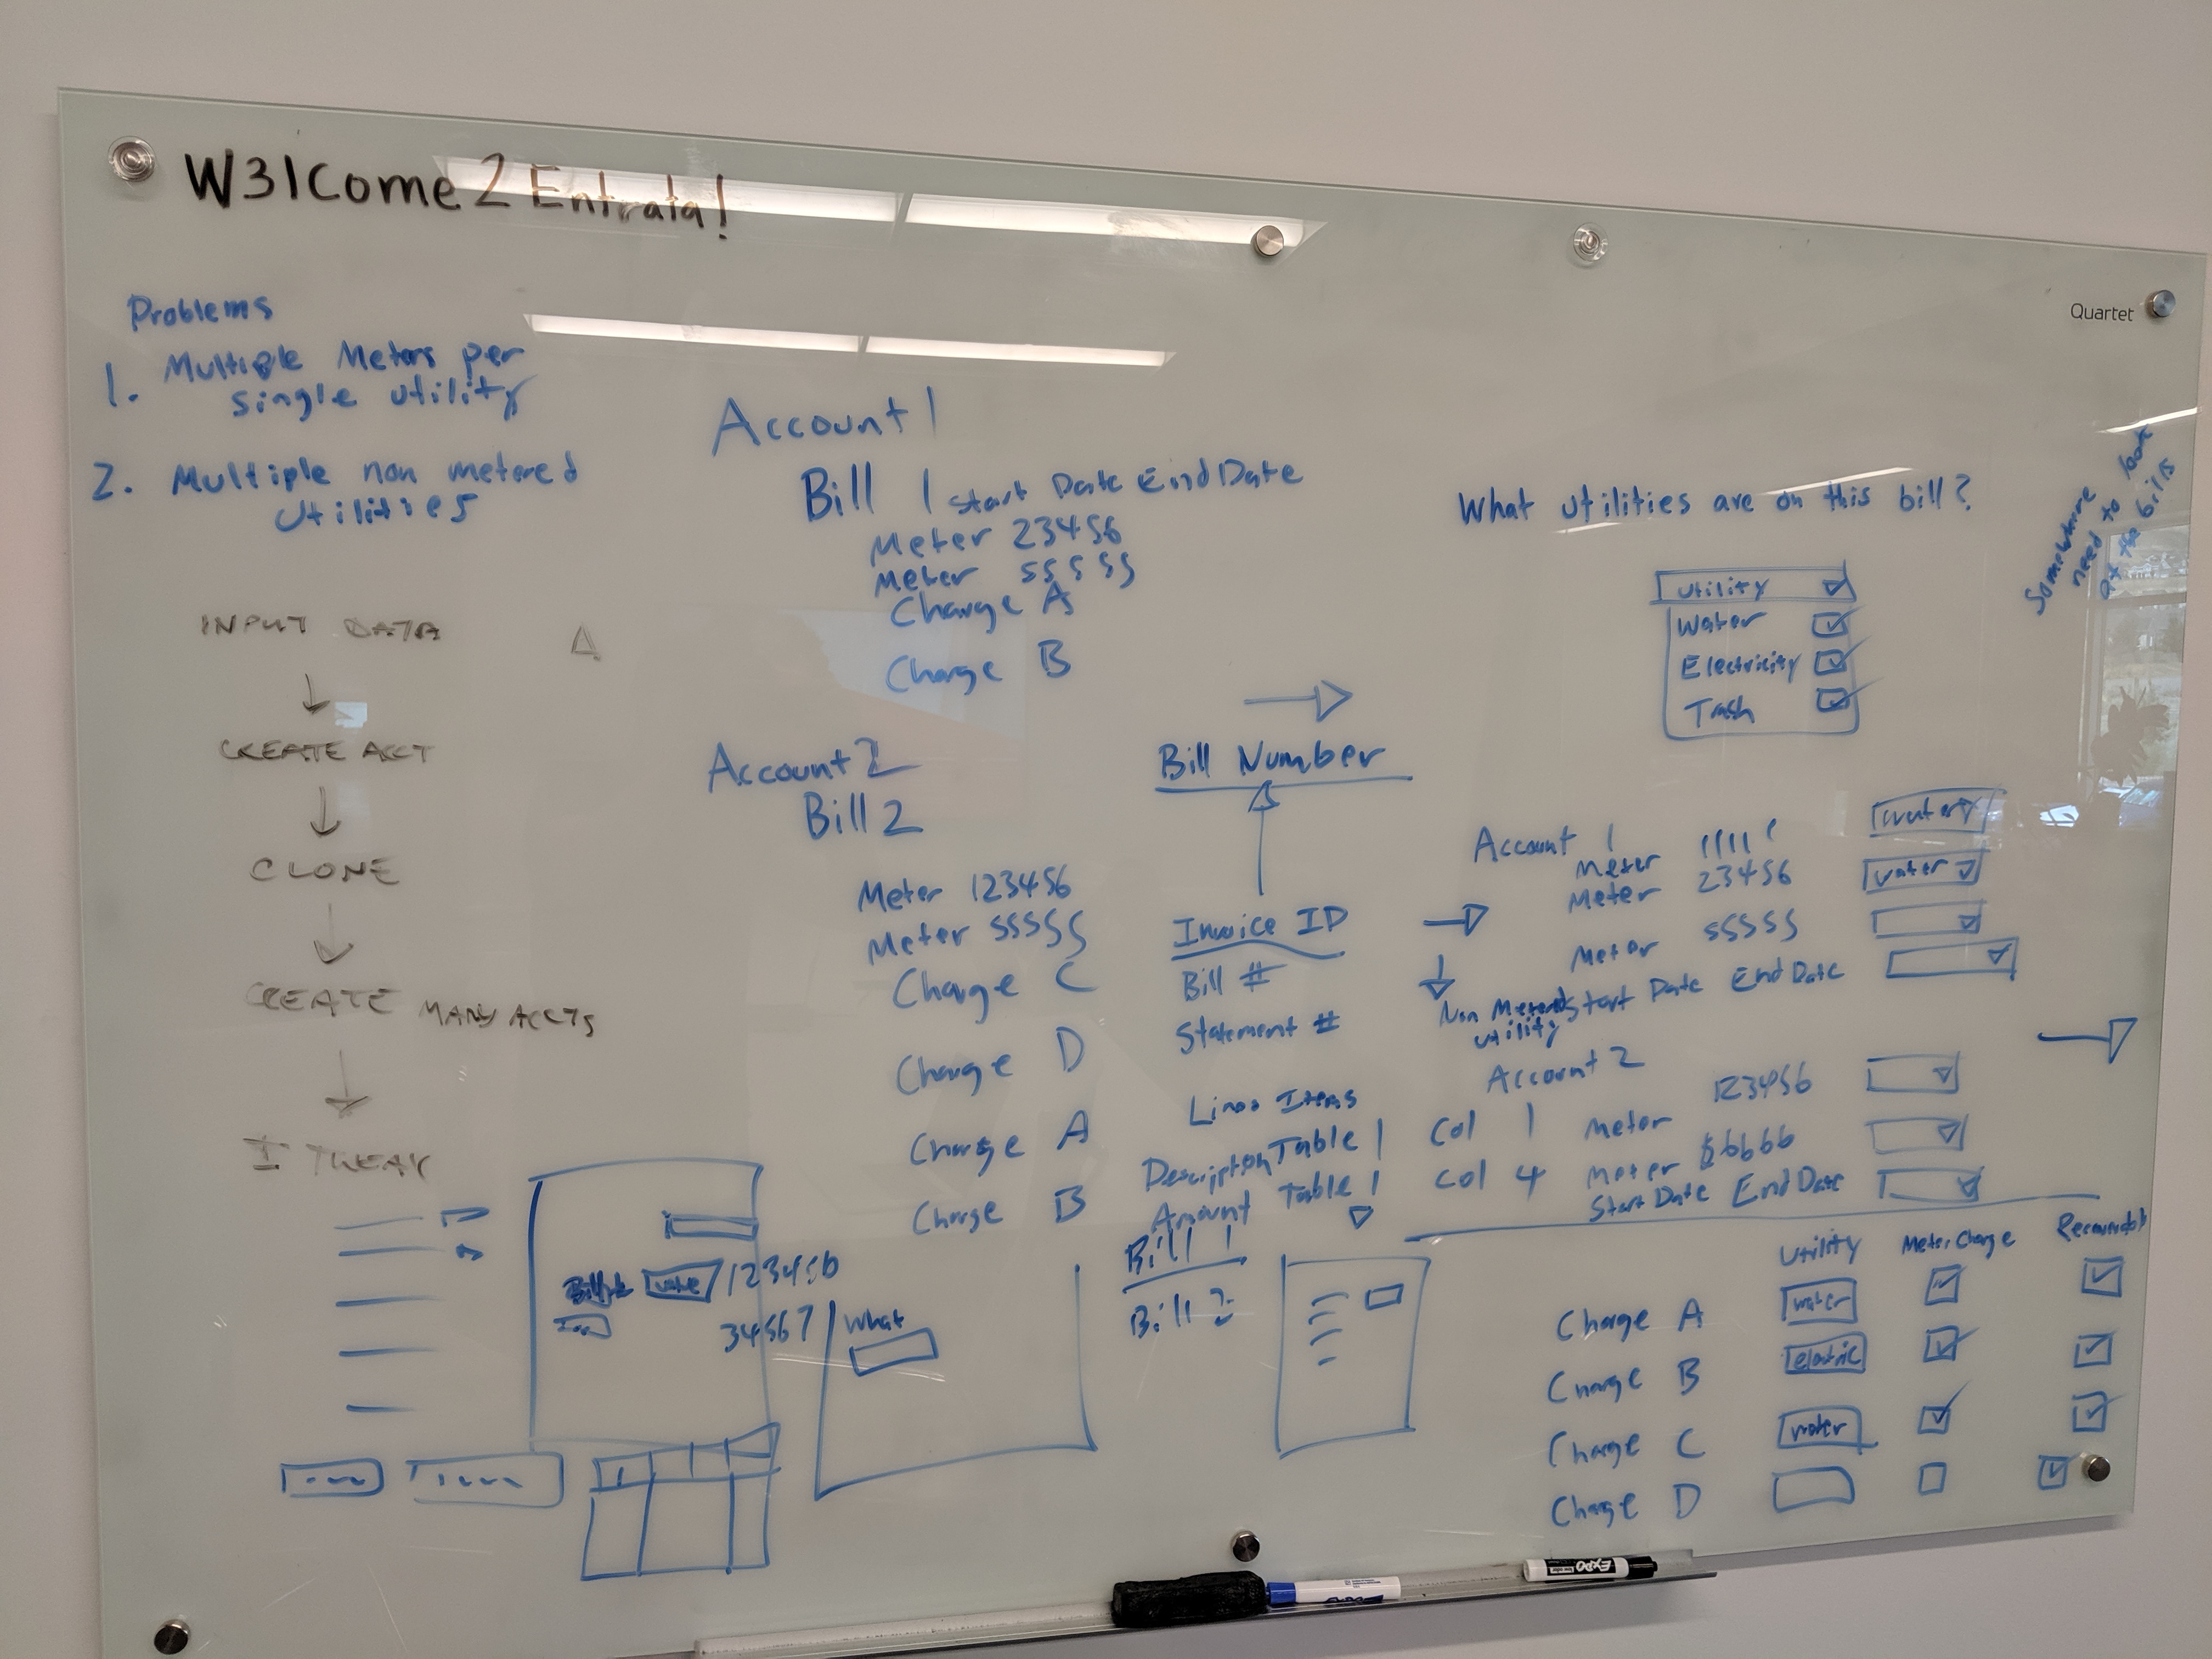 W31come 2 Entrata!
Quartet
Problems
1. Multiple Meters per
single utility
2. Multiple non metered
Utilities
INPUT DATA
CREATE ACCT
CLONE
CREATE MANY ACCTS
TWEAK
Account 1
Bill 1 Start Date End Date
Meter 23456
Meter 55555
Charge A
Charge B
Account 2
Bill 2
Meter 123456
Meter 55555
Charge C
Charge D
Charge A
Charge B
123456
34567
What
Bill Number
Invoice ID
Bill #
Statement #
Items
Description Table 1 Col 1
Amount Table 1 Col 4
Bill 1
Bill 2
What utilities are on this bill?
Somewhere
need to look
at the bills
Utility
Water
Electricity
Trash
Account 1
Meter 11111 water
Meter 23456 water
Meter 55555
Non Metered Start Date End Date
utility
Account 2
Meter 123456
Meter 66666
Start Date End Date
Utility Meter Charge
Charge A water
Charge B electric
Charge C water
Charge D
EXPO